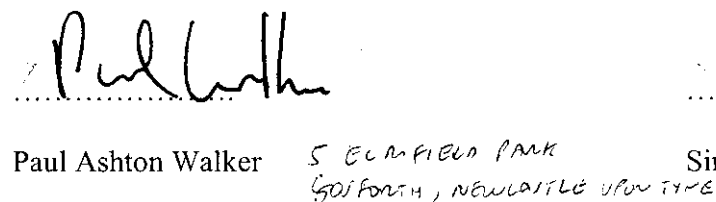 Paul Walker
Paul Ashton Walker 5 ELMFIELD PARK Sir
GOSFORTH, NEWCASTLE UPON TYNE